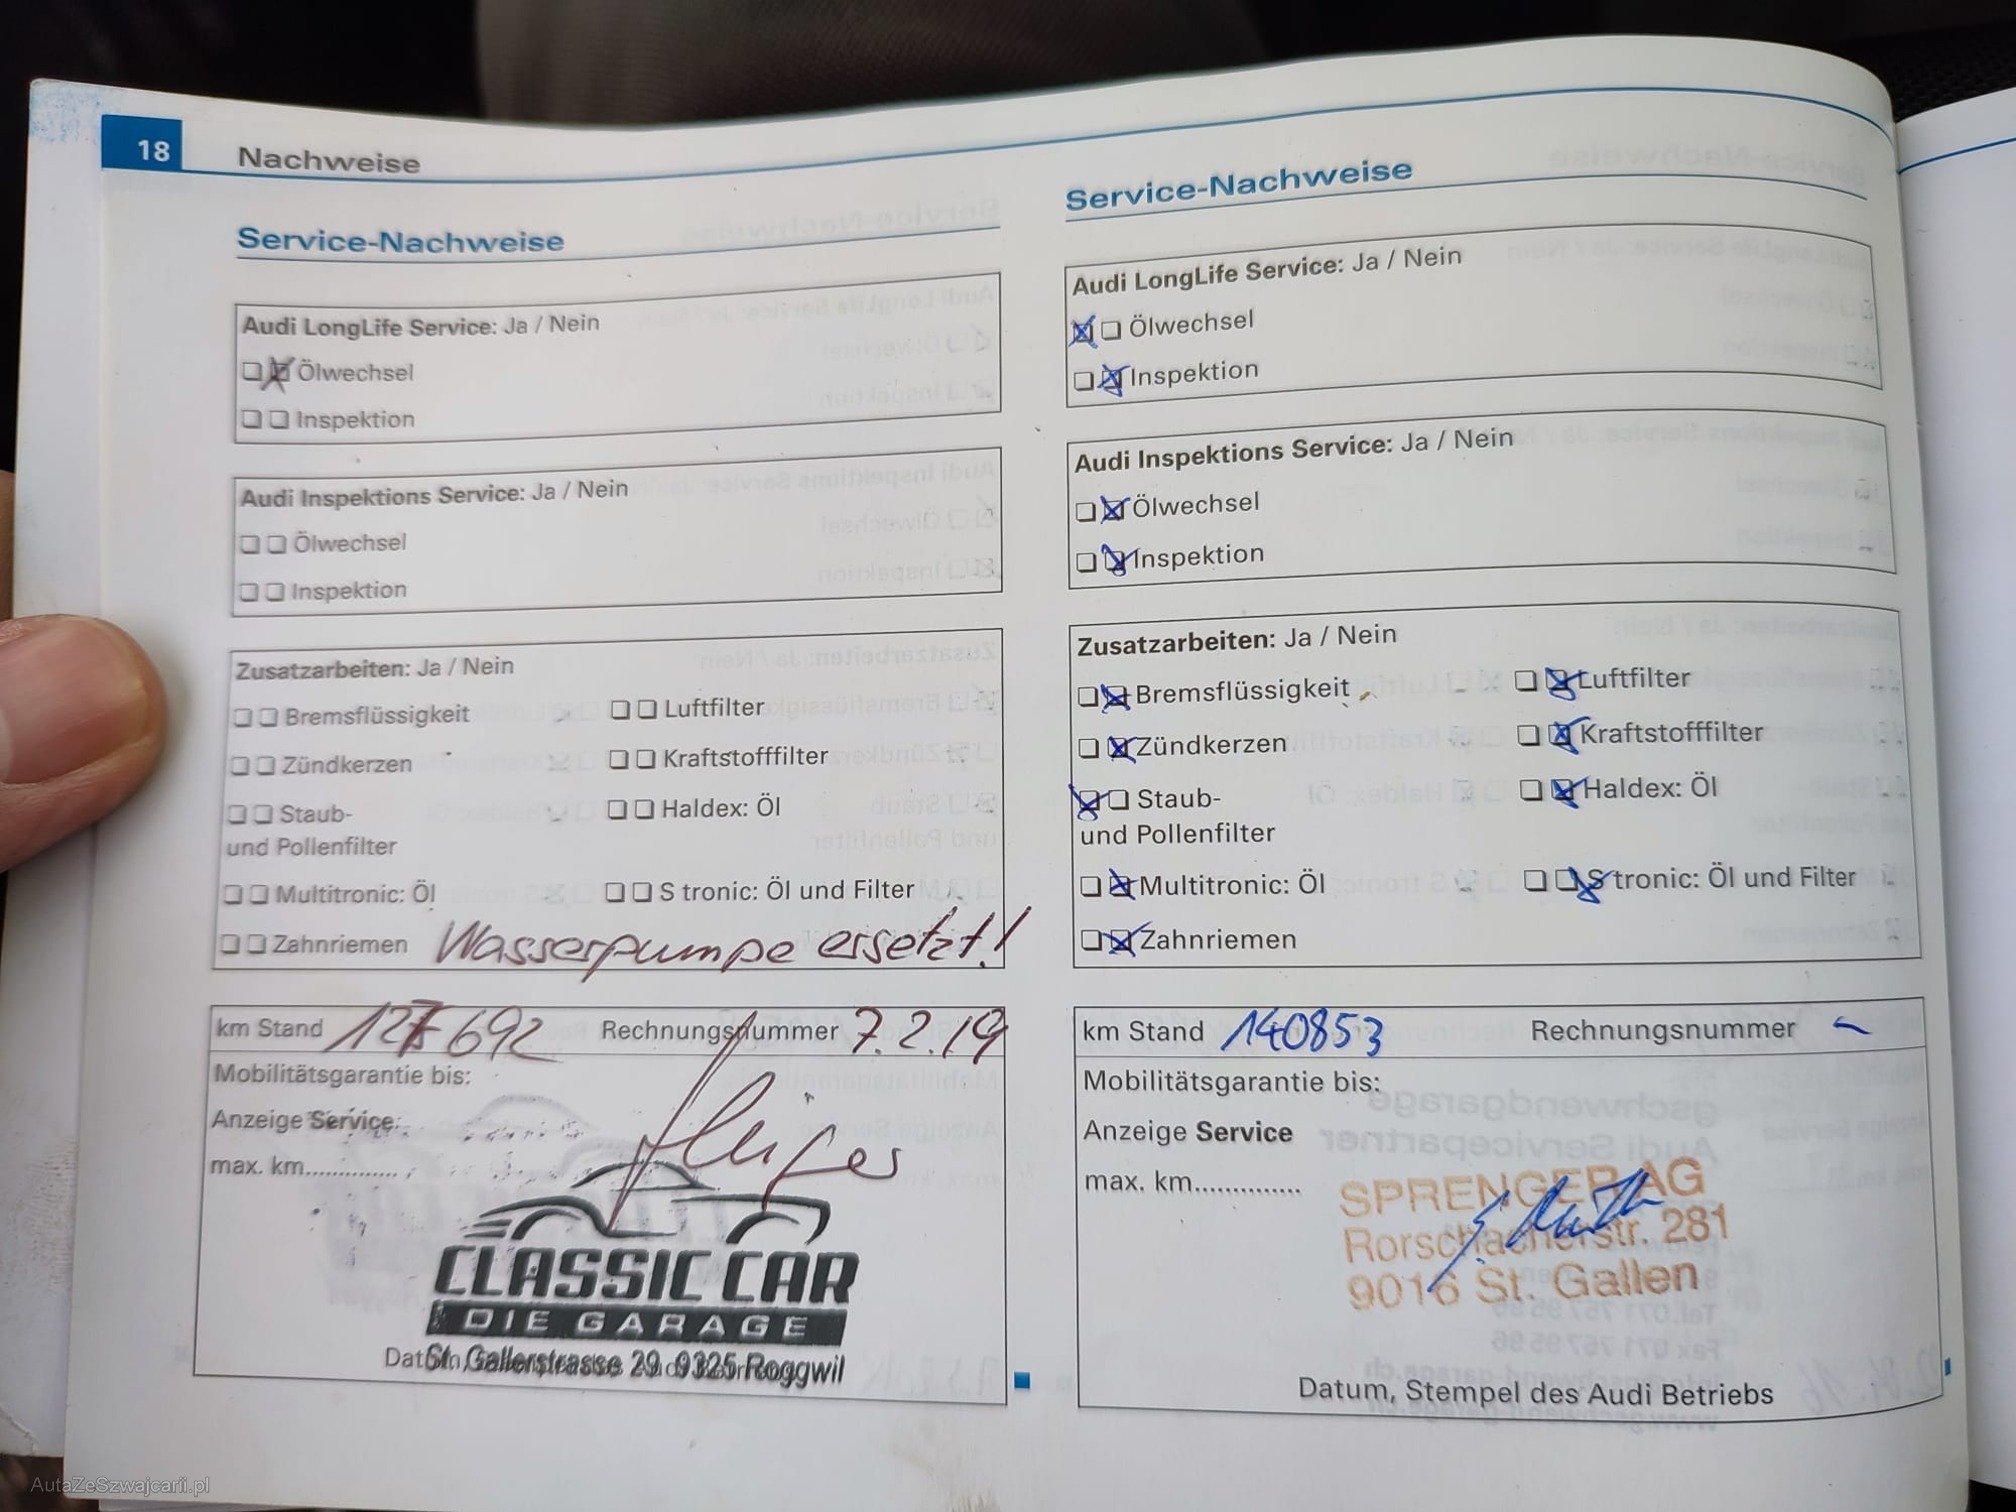 18 Nachweise
Service-Nachweise
Audi LongLife Service: Ja / Nein
Ölwechsel
Inspektion
Audi Inspektions Service: Ja / Nein
Ölwechsel
Inspektion
Zusatzarbeiten: Ja / Nein
Bremsflüssigkeit Luftfilter
Zündkerzen Kraftstofffilter
Staub- Haldex: Öl
und Pollenfilter
Multitronic: Öl S tronic: Öl und Filter
Zahnriemen Wasserpumpe ersetzt!
km Stand 127692 Rechnungsnummer 7.2.19
Mobilitätsgarantie bis:
Anzeige Service:
max. km..............
CLASSIC CAR
DIE GARAGE
St. Gallerstrasse 29 9325 Roggwil
Service-Nachweise
Audi LongLife Service: Ja / Nein
Ölwechsel
Inspektion
Audi Inspektions Service: Ja / Nein
Ölwechsel
Inspektion
Zusatzarbeiten: Ja / Nein
Bremsflüssigkeit Luftfilter
Zündkerzen Kraftstofffilter
Staub- Haldex: Öl
und Pollenfilter
Multitronic: Öl S tronic: Öl und Filter
Zahnriemen
km Stand 140853 Rechnungsnummer
Mobilitätsgarantie bis:
Anzeige Service
max. km...............
SPRENGER AG
Rorschacherstr. 281
9016 St. Gallen
Datum, Stempel des Audi Betriebs
AutaZeSzwajcarii.pl